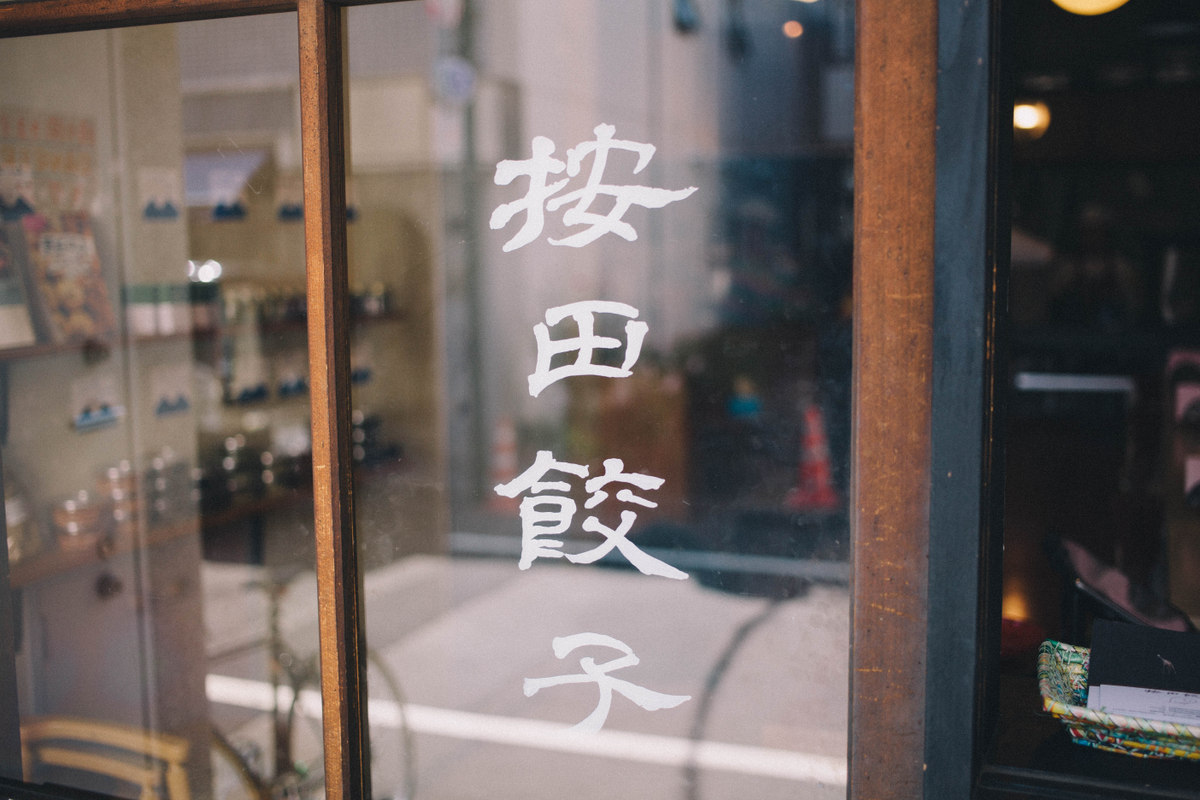 按田餃子